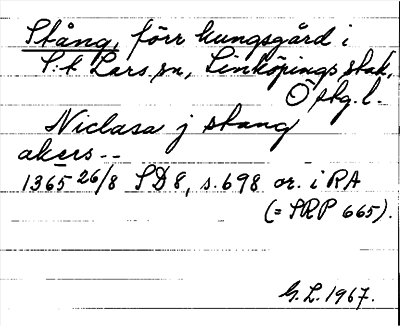 Stång, förr kungsgård i
S:t Lars sn, Linköpings stad,
Östg.l.
Niclasa j stang
akers--
1365 26/8 SD8, s.698 or. i RA
(= SRP 665).
G.L. 1967.